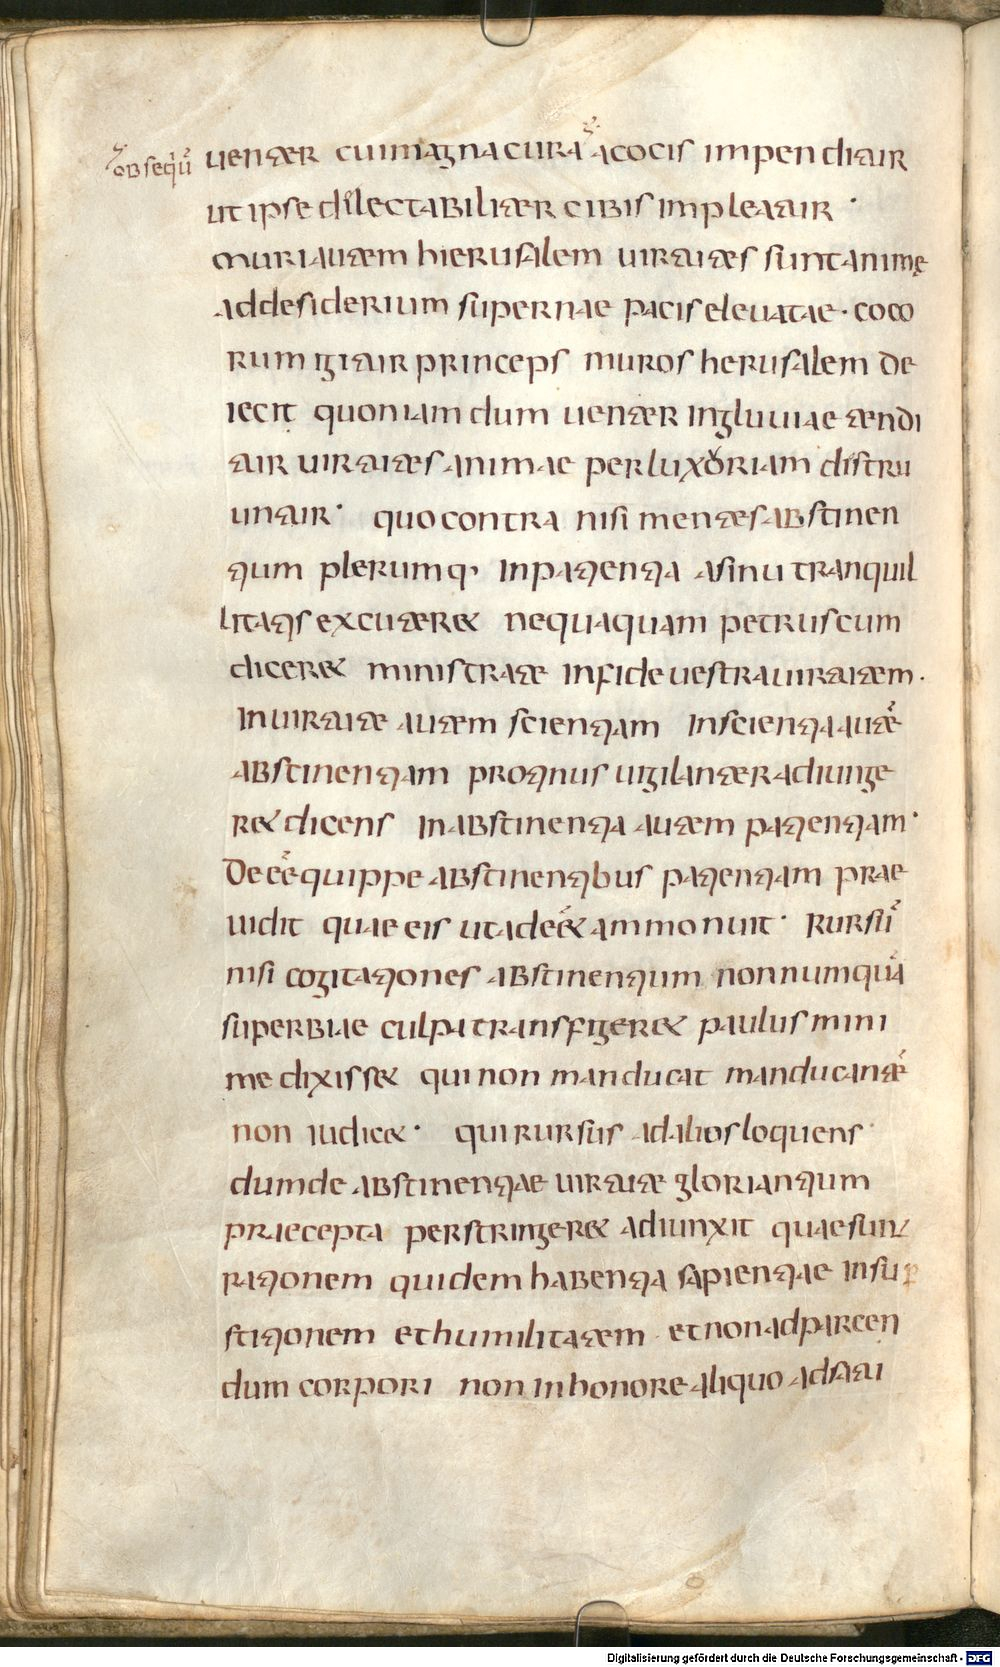 obseqͥuū uenter cui magna cura acocis impenditur
ut ipse delectabiliter cibis impleatur ·
muri autem hierusalem uirtutes sunt animę
addesiderium supernae pacis eleuatae · coco
rum igitur princeps muros herusalem de
iecit quoniam dum uenter ingluuiae tendi
tur uirtutes animae perluxoriam distru
untur · quo contra nisi mentes abstinen
tium plerumq, inpatientia asinu tranquil
litatis excuteret nequaquam petrus cum
diceret ministrate infide uestra uirtutem ·
Inuirtute autem scientiam Inscientia autē
abstinentiam protinus uigilanter adiunge
ret dicens Inabstinentia autem patientiam ·
Deeē quippe abstinentibus patientiam prae
uidit quae eis ut adeēt ammonuit · Rursū
nisi cogitationes abstinentium nonnumquā
superbiae culpa transfigeret paulus mini
me dixisset qui non manducat manducantē
non iudicet · qui rursus ad alios loquens
dum de abstinentiae uirtute gloriantium
praecepta perstringeret adiunxit quae sunt
rationem quidem habentia sapientiae Insup
stitionem et humilitatem · et non ad parcen
dum corpori non inhonore aliquo ad sati
Digitalisierung gefördert durch die Deutsche Forschungsgemeinschaft - DFG